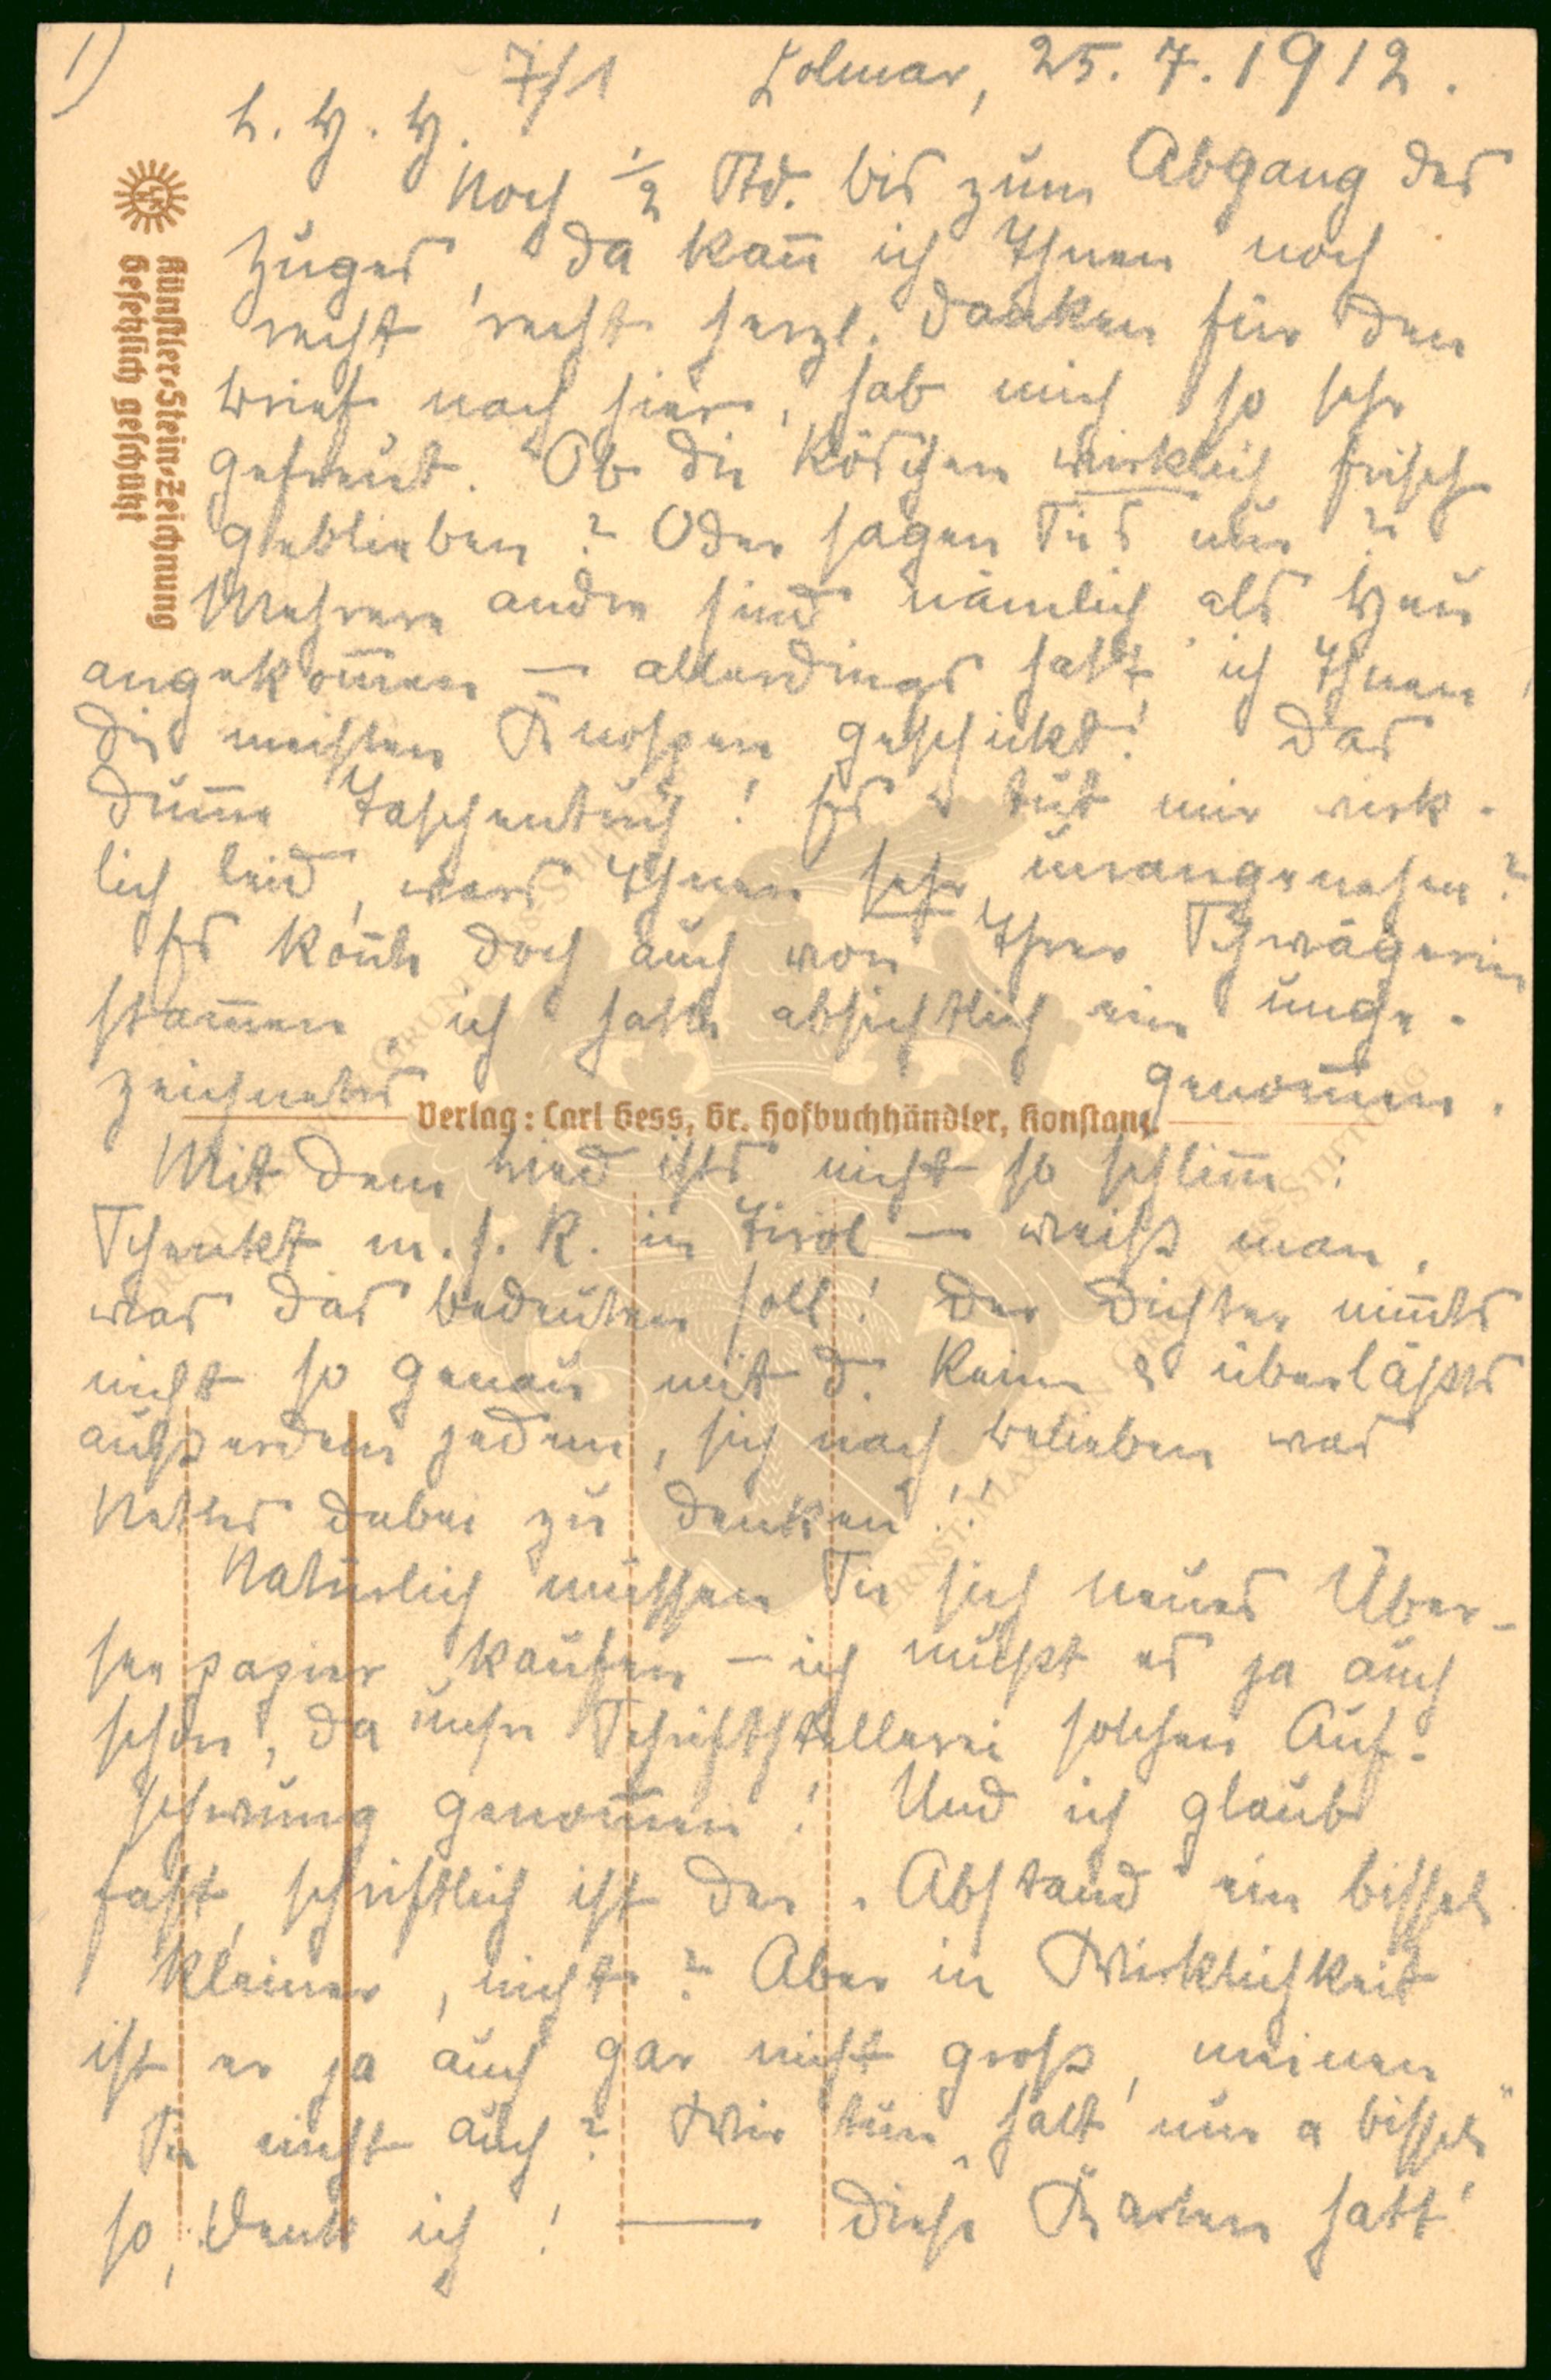 1)
7/1 Colmar, 25. 7. 1912.
L. H. H.
Noch ½ Std. bis zum Abgang des
Zuges, da kan̄ ich Ihnen noch
recht recht herzl. danken für den
Brief nach hier, hab mich so sehr
gefreut. Ob die Röschen wirklich frisch
geblieben? Oder sagen Sies nur?
Mehrere andre sind nämlich als Heu
angekom̄en — allerdings hatt' ich Ihnen
die meisten Knospen geschickt! Das
dum̄e Taschentuch! Es tut mir wirk-
lich leid, wars Ihnen sehr unangenehm?
Es kön̄te doch auch von Ihrer Schwägerin
stam̄en, ich hatte absichtlich ein unge-
zeichnetes genom̄en.
Mit dem Lied ists nicht so schlim̄:
Schenkt m. s. R. in Tirol — weiß man,
was das bedeuten soll! Der Dichter nim̄ts
nicht so genau mit d. Reim & überläßts
außerdem jedem, sich nach Belieben was
Nettes dabei zu denken!!
Natürlich müssen Sie sich neues Über-
seepapier kaufen — ich müßt es ja auch
schon, da unsre Schriftstellerei solchen Auf-
schwung genom̄en! Und ich glaube
fast, schriftlich ist der „Abstand" ein bissel
kleiner, nicht? Aber in Wirklichkeit
ist er ja auch gar nicht groß, meinen
Sie nicht auch? Wir tun „halt nur a bissel"
so, denk ich! — Diese Karten hatt'
Künstler-Stein-Zeichnung
Gesetzlich geschützt
Verlag: Carl Gess, Gr. Hofbuchhändler, Konstanz
ERNST MAX VON GRUNELIUS-STIFTUNG
ERNST MAX VON GRUNELIUS-STIFTUNG